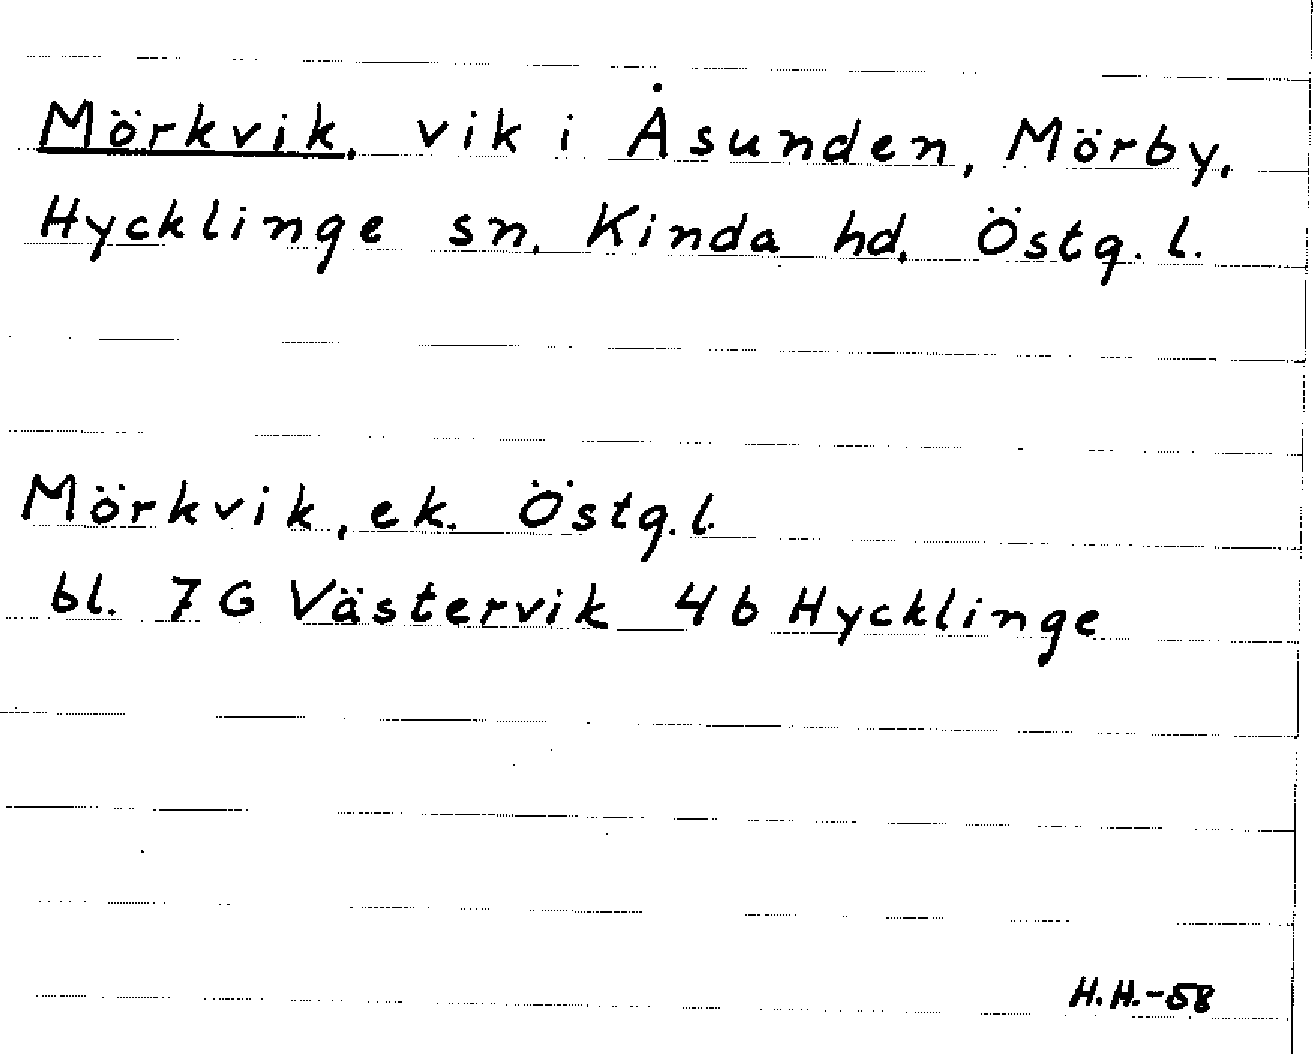 Mörkvik, vik i Åsunden, Mörby,
Hycklinge sn. Kinda hd. Östg. l.
Mörkvik, ek. Östg. l.
bl. 7 G Västervik 4 b Hycklinge
H.H.-58